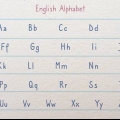 English Alphabet
Aa Bb Cc Dd
Ff Gg Hh Ii
Kk Ll Mm Nn
Pp Qq Rr Ss
Uu Vv Ww Xx Yy